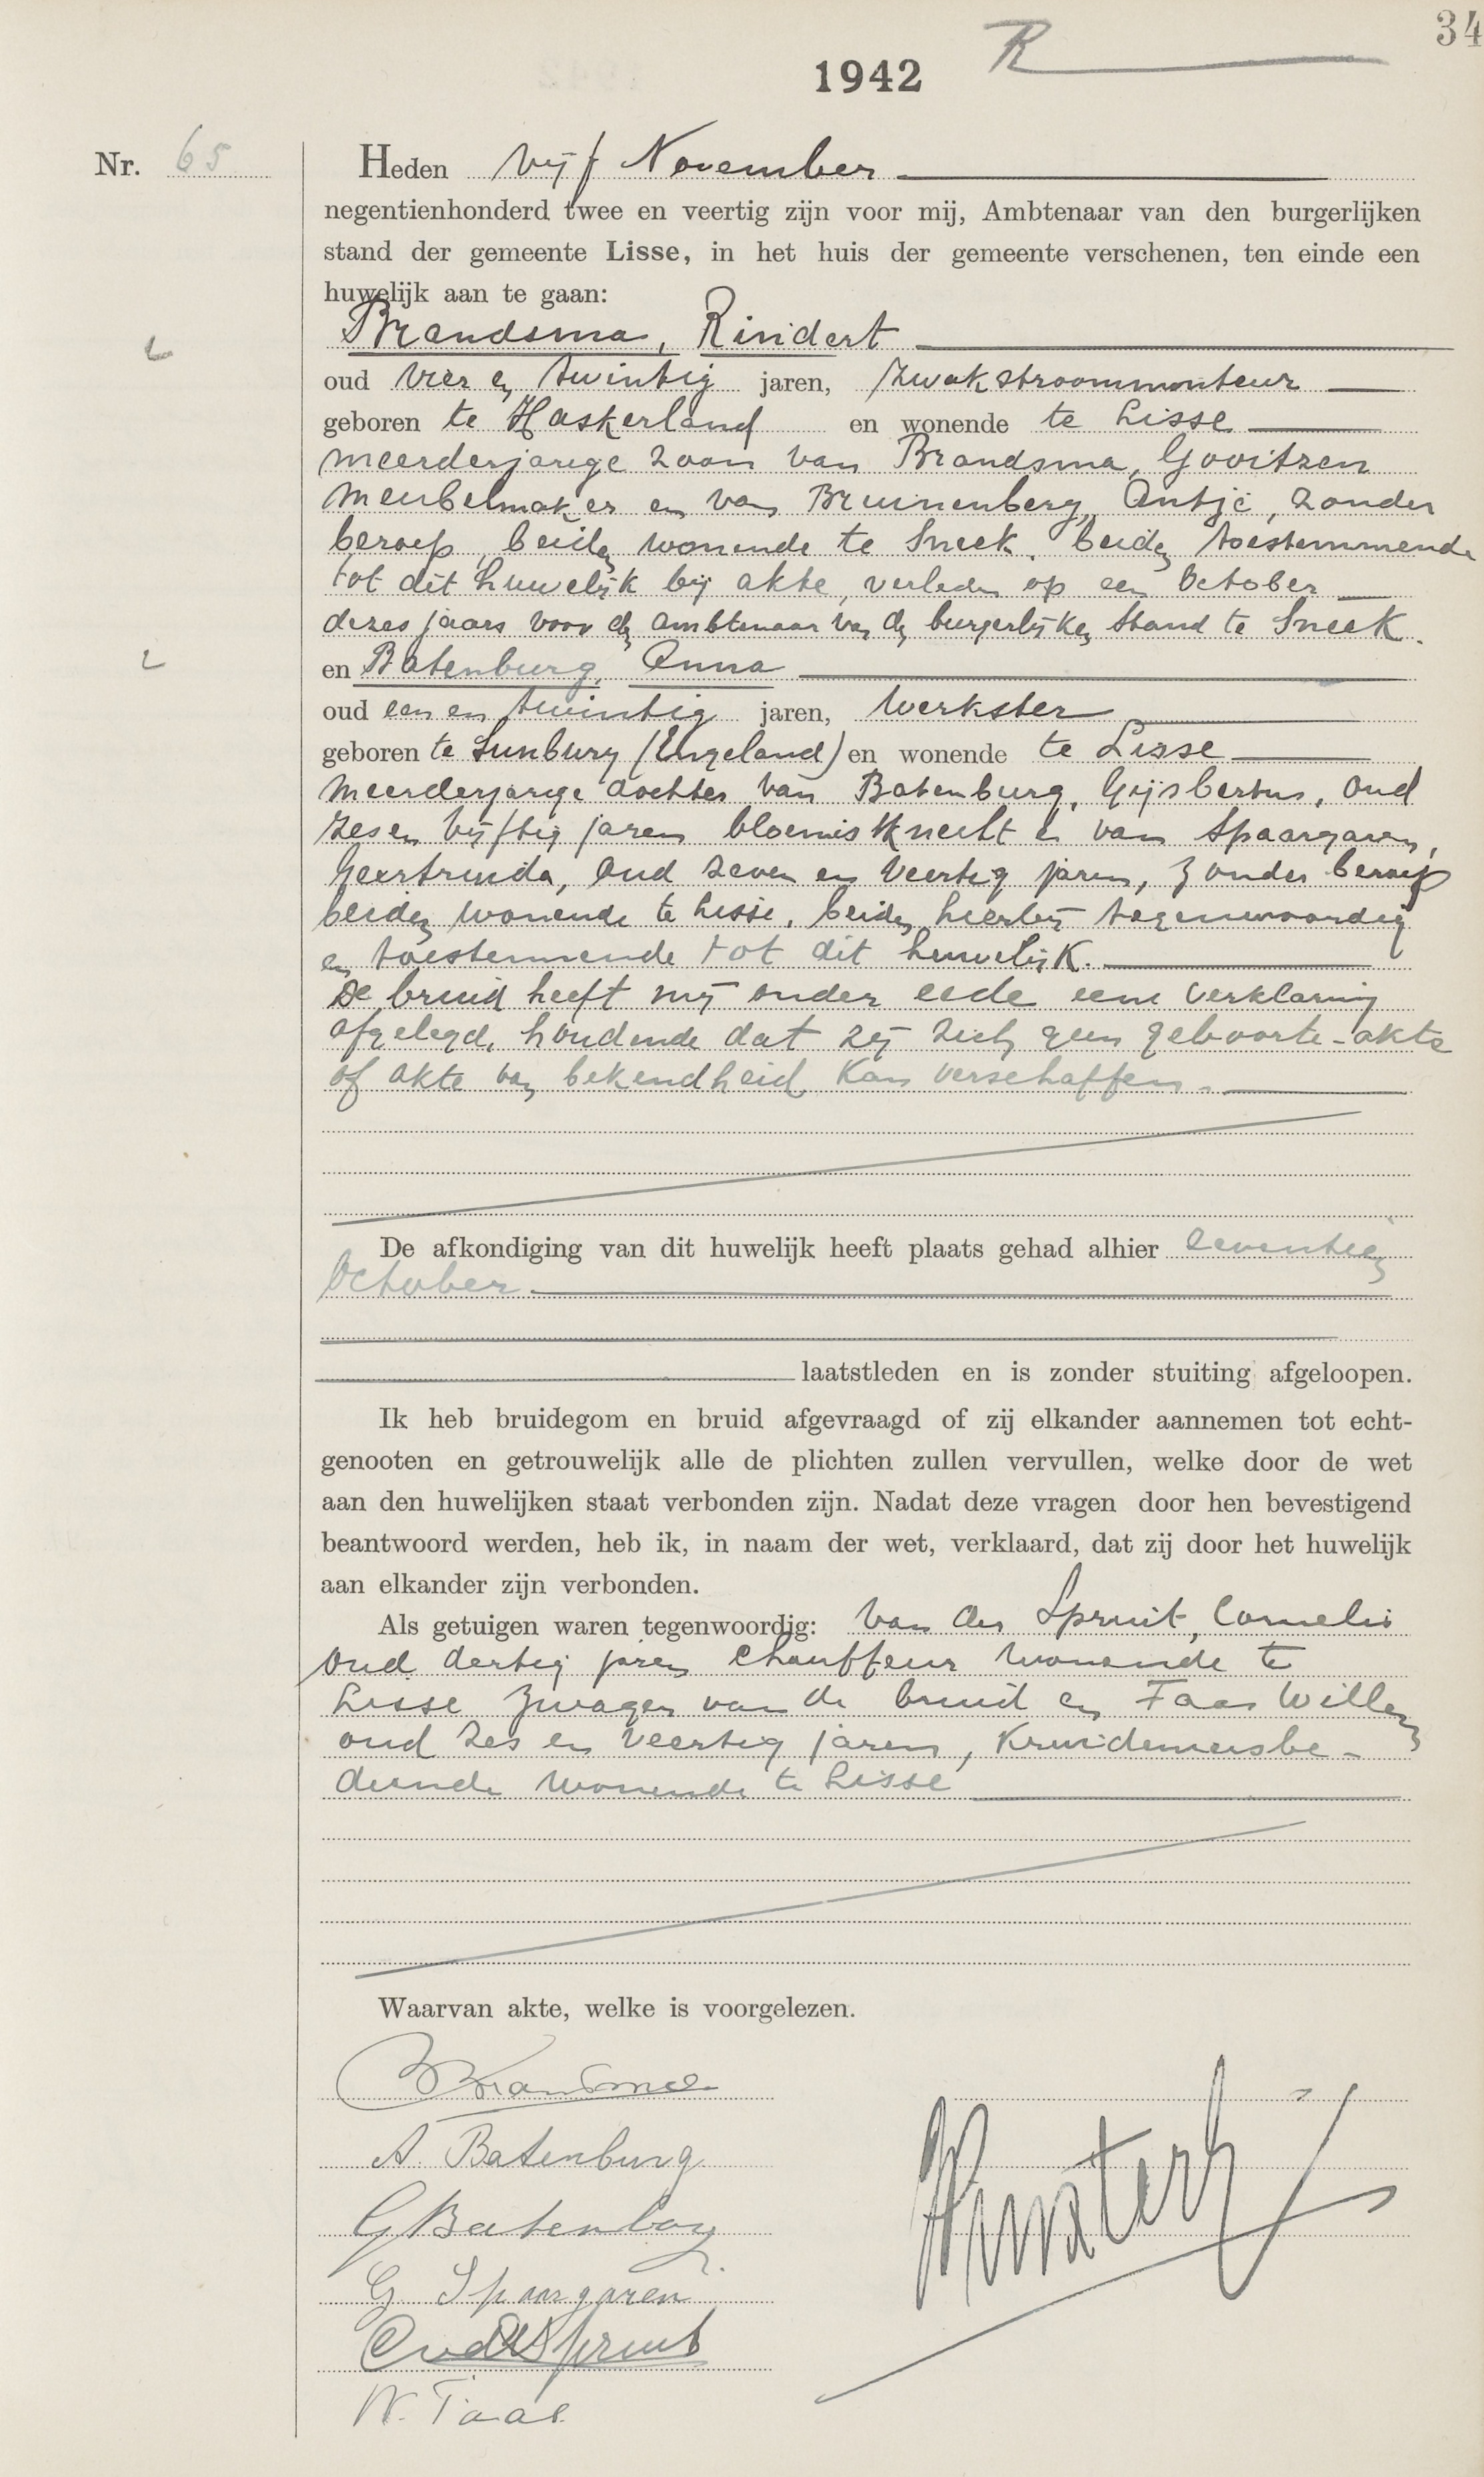 34
R
1942
Nr. 65
Heden vijf November
negentienhonderd twee en veertig zijn voor mij, Ambtenaar van den burgerlijken
stand der gemeente Lisse, in het huis der gemeente verschenen, ten einde een
huwelijk aan te gaan:
Brandsma, Rindert
oud vier en twintig jaren, zwakstroommonteur
geboren te Haskerland en wonende te Lisse
meerderjarige zoon van Brandsma, Gooitzen
meubelmaker en van Bruinenberg, Antje, zonder
beroep, beiden wonende te Sneek. beiden toestemmende
tot dit huwelijk bij akte, verleden op een October
dezes jaars voor den ambtenaar van den burgerlijken Stand te Sneek.
en Batenburg, Anna
oud een en twintig jaren, werkster
geboren te Sunbury (Engeland) en wonende te Lisse
meerderjarige dochter van Batenburg, Gijsbertus, oud
zes en vijftig jaren bloemistknecht en van Spaargaren,
Geertruida, oud zeven en veertig jaren, zonder beroep
beiden wonende te Lisse, beiden hierbij tegenwoordig
en toestemmende tot dit huwelijk.
De bruid heeft mij onder eede eene verklaring
afgelegd, houdende dat zij zich geen geboorte-akte
of akte van bekendheid kan verschaffen.
De afkondiging van dit huwelijk heeft plaats gehad alhier
October
laatstleden en is zonder stuiting afgeloopen.
Ik heb bruidegom en bruid afgevraagd of zij elkander aannemen tot echt-
genooten en getrouwelijk alle de plichten zullen vervullen, welke door de wet
aan den huwelijken staat verbonden zijn. Nadat deze vragen door hen bevestigend
beantwoord werden, heb ik, in naam der wet, verklaard, dat zij door het huwelijk
aan elkander zijn verbonden.
Als getuigen waren tegenwoordig: van der Spruit, Cornelis
oud dertig jaren chauffeur wonende te
Lisse zwager van de bruid en Faas Willem
oud zes en veertig jaren, kruideniersbe-
diende wonende te Lisse
Waarvan akte, welke is voorgelezen.
R Brandsma
A. Batenburg
G Batenburg
G Spaargaren
C vd Spruit
W. Faas